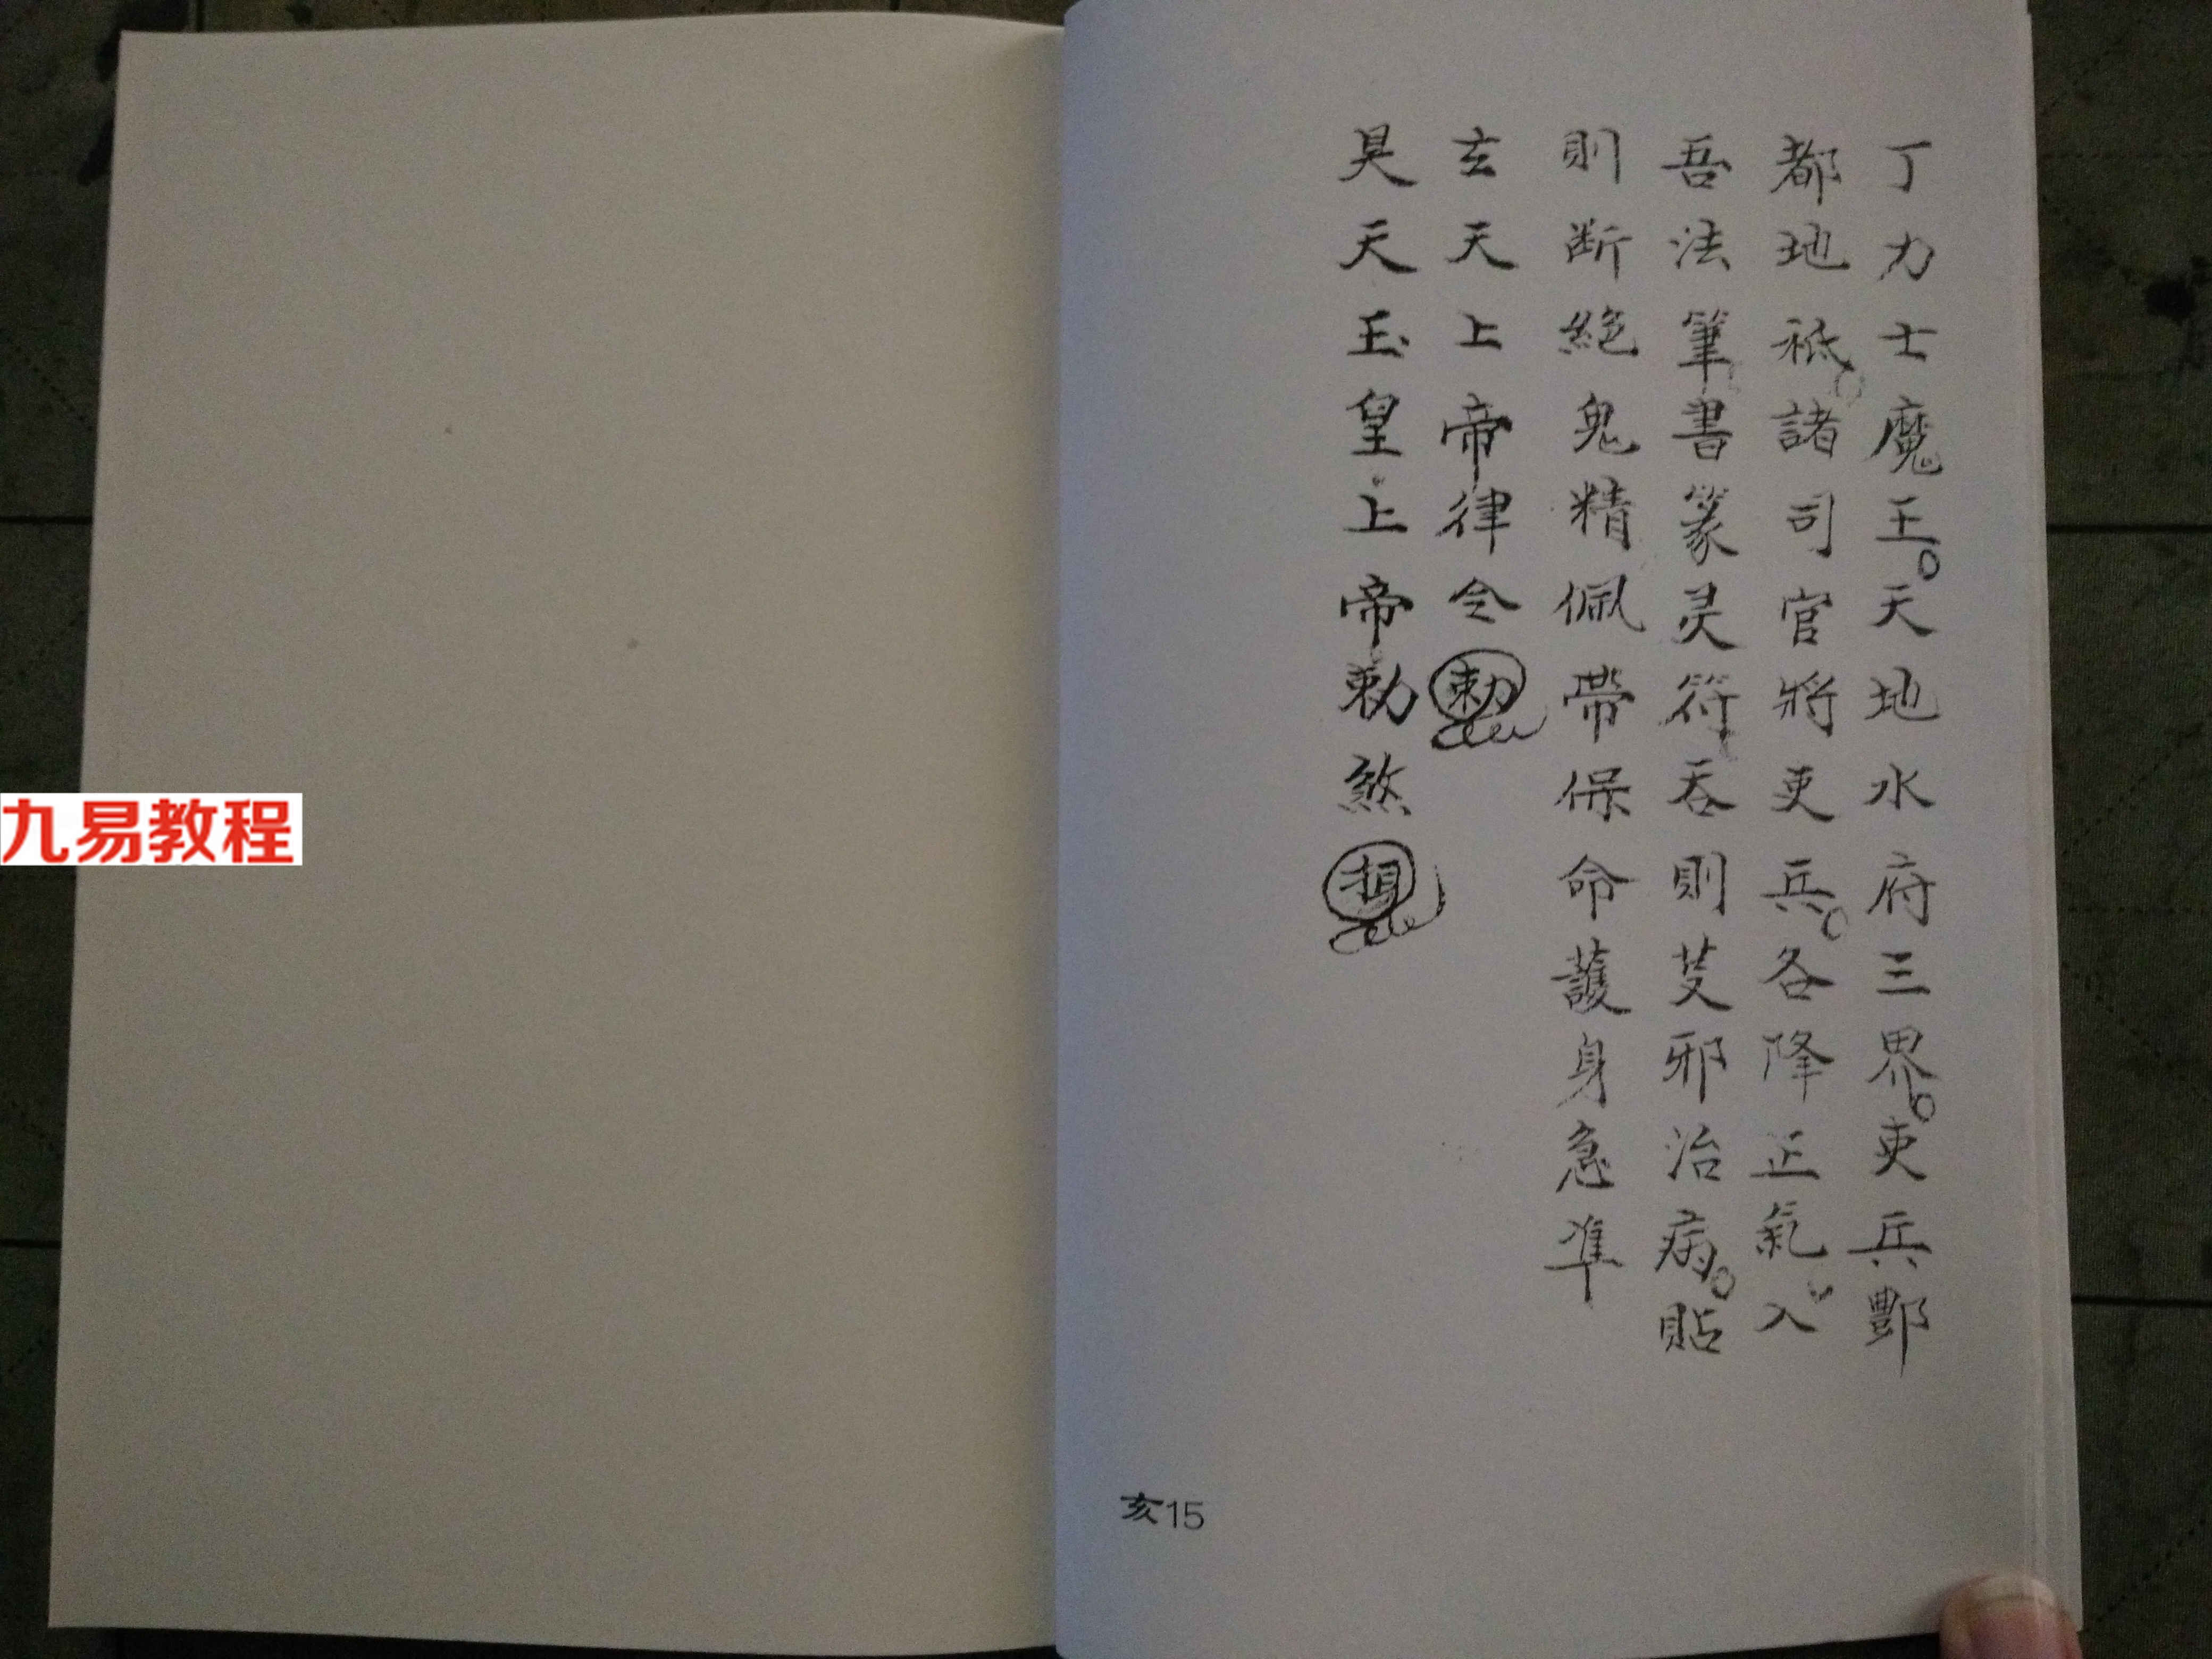 丁力士魔王。天地水府三界。吏兵酆
都地祇。諸司官將吏兵。各降正氣。入
吾法筆書篆灵符吞則芟邪治病。貼
則断絕鬼精佩帶保命護身急準
玄天上帝律令勅
昊天玉皇上帝勅煞
亥15
九易教程